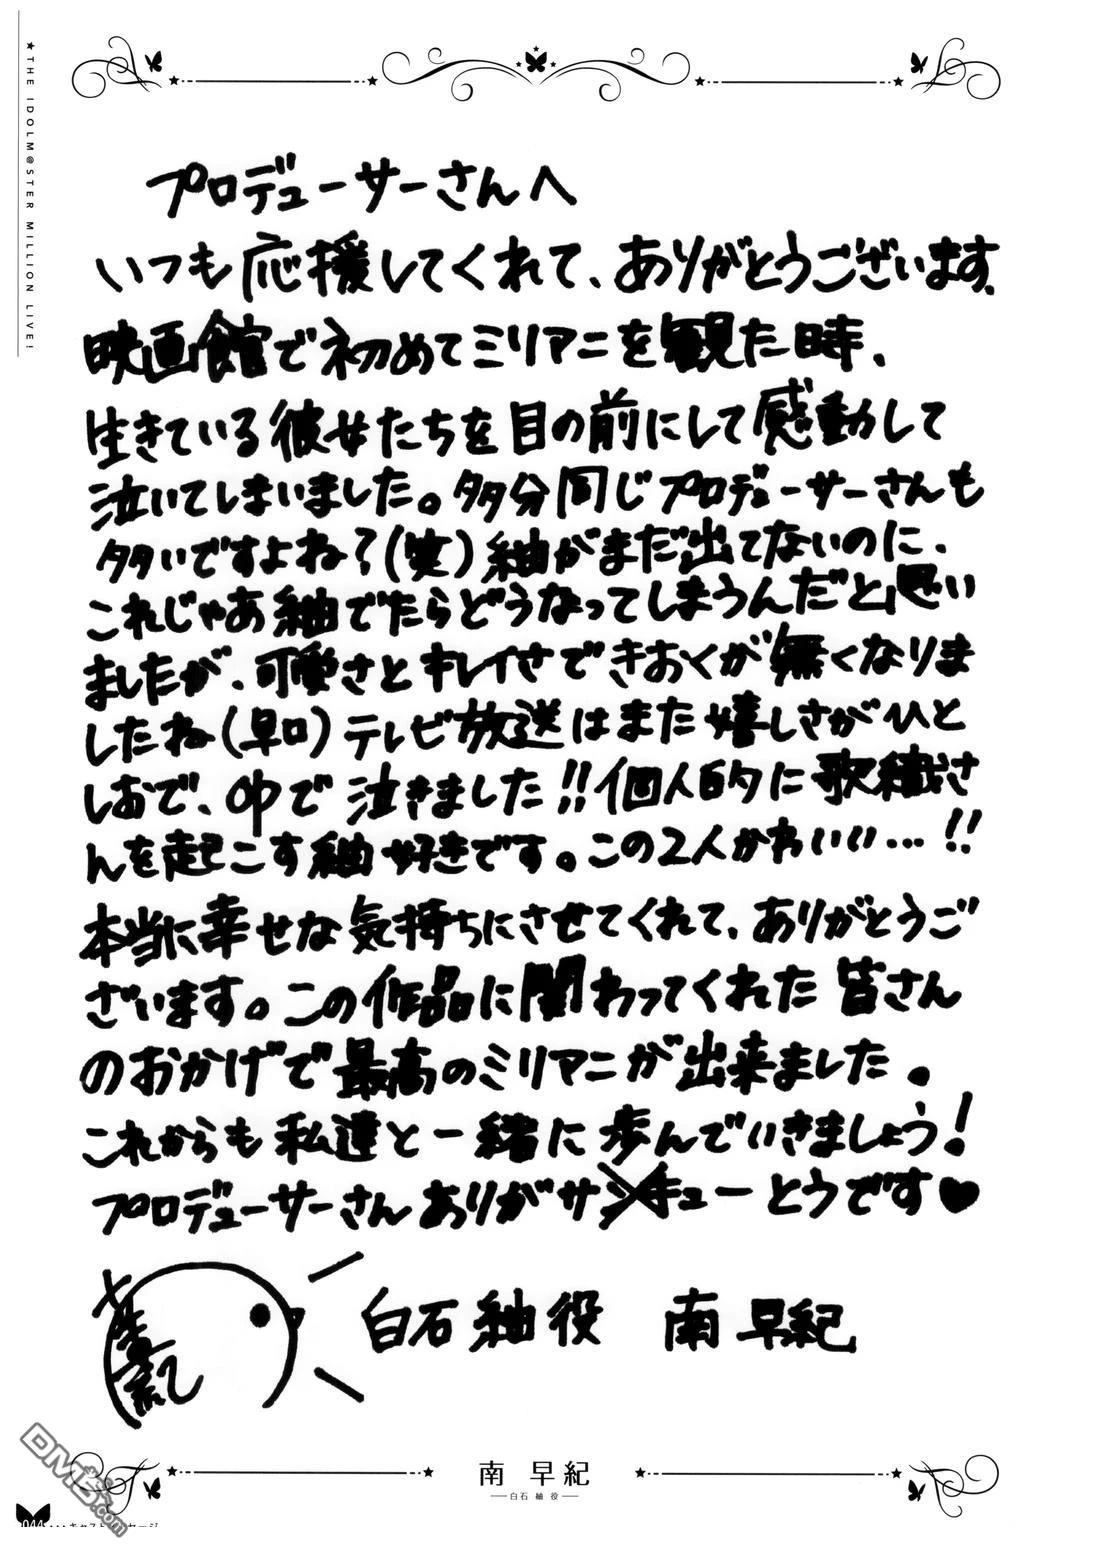 ★THE IDOLM@STER MILLION LIVE!
プロデューサーさんへ
いつも応援してくれて、ありがとうございます。
映画館で初めてミリアニを観た時、
生きている彼女たちを目の前にして感動して
泣いてしまいました。多分同じプロデューサーさんも
多いですよね?(笑)紬がまだ出てないのに、
これじゃあ紬でたらどうなってしまうんだと思い
ましたが、可愛さとキレイさできおくが無くなりま
したね(早口)テレビ放送はまた嬉しさがひと
しおで、中で泣きました!!個人的に歌織さ
んを起こす紬好きです。この2人かわいい…!!
本当に幸せな気持ちにさせてくれて、ありがとうご
ざいます。この作品に関わってくれた皆さん
のおかげで最高のミリアニが出来ました。
これからも私達と一緒に歩んでいきましょう!
プロデューサーさんありがサンキューとうです♥
白石紬役 南早紀
南 早紀
白石 紬 役
044・・・キャストメッセージ